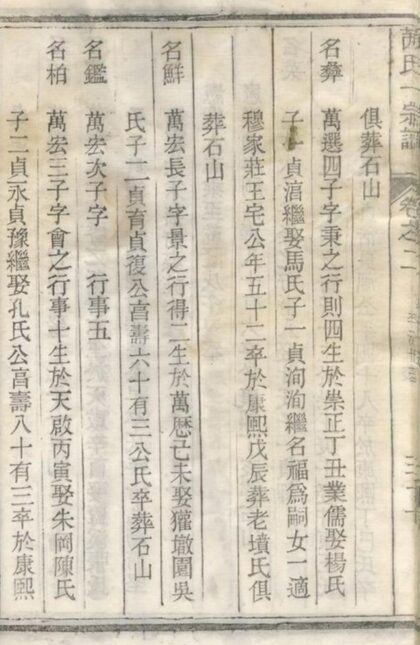 氏一宗譜 卷之二
俱葬石山
名彝 萬選四子字秉之行則四生於崇正丁丑業儒娶楊氏
子一貞淯繼娶馬氏子一貞洵洵繼名福爲嗣女一適
穆家莊王宅公年五十二卒於康熙戊辰葬老墳氏俱
葬石山
名鮮 萬宏長子字景之行得二生於萬歷己未娶獾墩園吳
氏子二貞育貞復公高壽六十有三公氏卒葬石山
名鑑 萬宏次子字 行事五
名柏 萬宏三子字會之行事十生於天啟丙寅娶朱岡陳氏
子二貞永貞豫繼娶孔氏公高壽八十有三卒於康熙